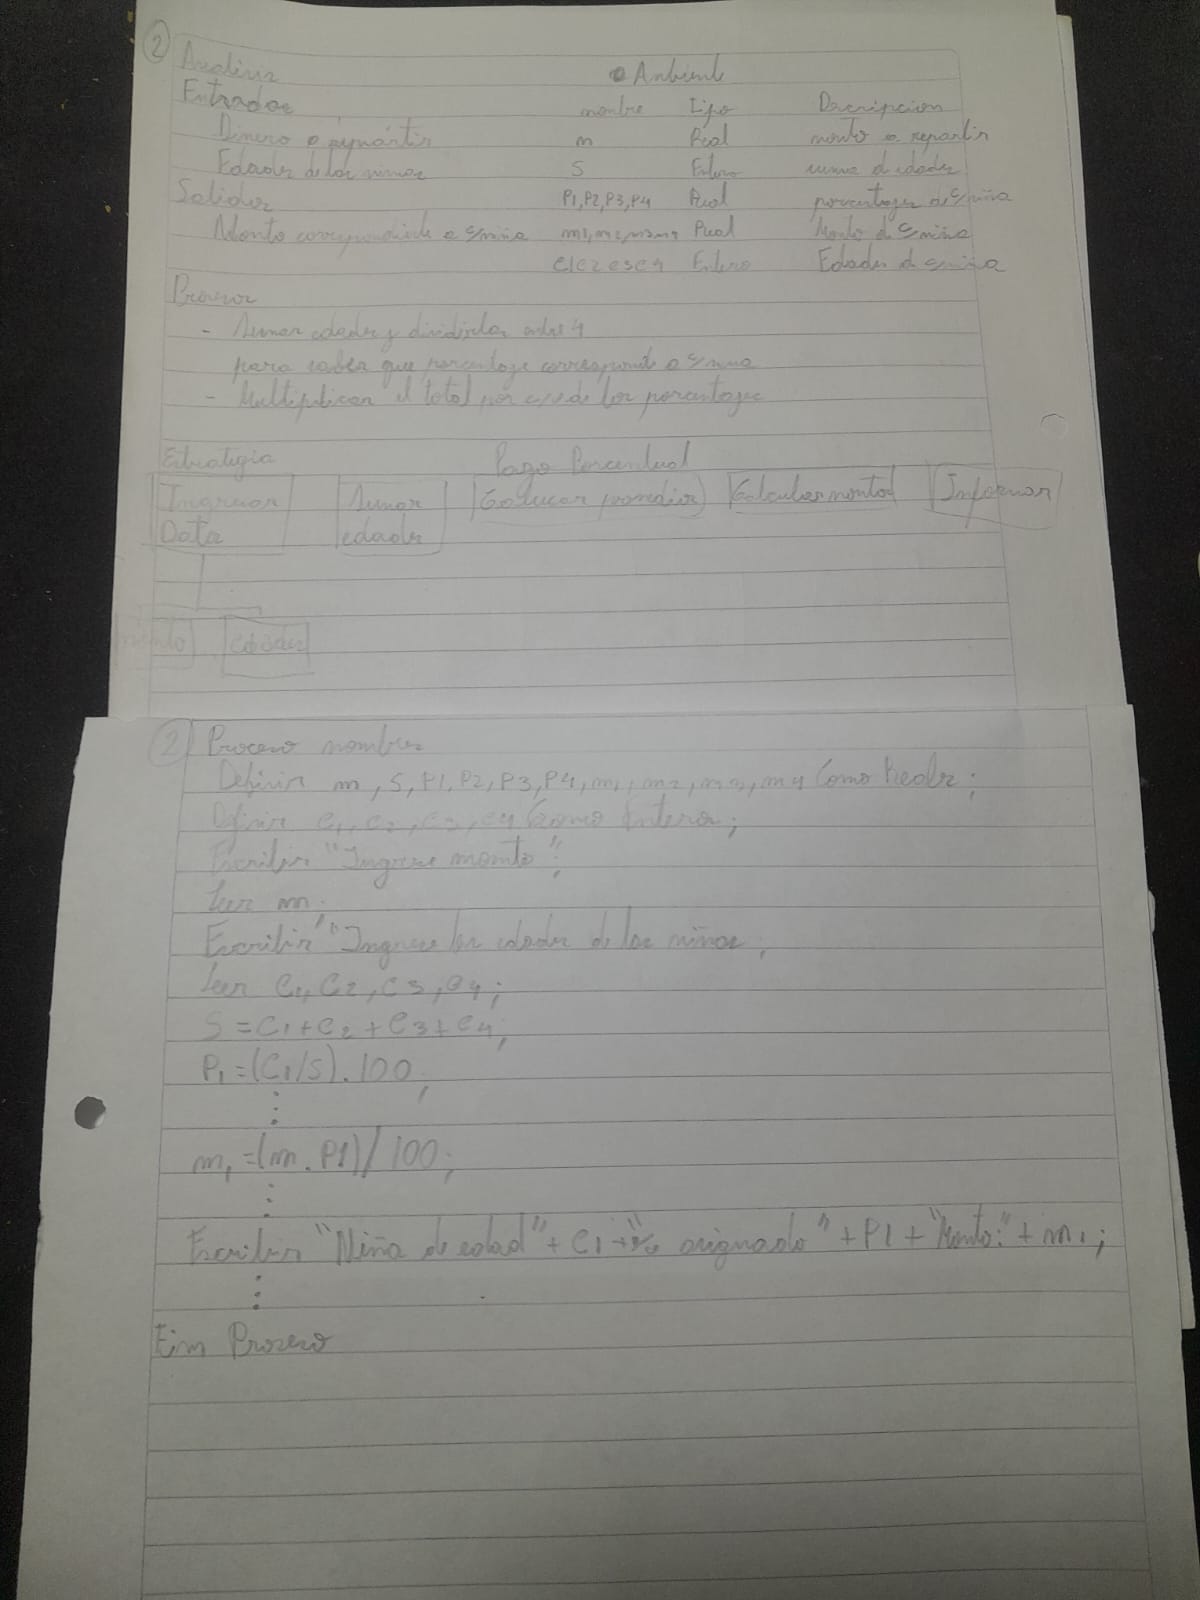 2
Analisis
Entradas
Dinero a repartir
Edades de las niñas
Salidas
Monto correspondiente a c/niña
Ambiente
nombre Tipo Descripcion
m Real monto a repartir
S Entero suma d edades
P1, P2, P3, P4 Real porcentajes de c/niña
m1, m2, m3, m4 Real Monto d c/niña
e1 e2 e3 e4 Entero Edades d c/niña
Proceso
- Sumar edades y dividirlas entre 4
para saber que porcentaje corresponde a c/niña
- Multiplicar el total por c/u de los porcentajes
Estrategia
Pago Porcentual
Ingresar Data
Sumar edades
promedios
Calcular montos
Informar
monto
edades
2 Proceso nombres
Definir m, S, P1, P2, P3, P4, m1, m2, m3, m4 Como Reales;
Definir e1, e2, e3, e4 Como Enteros;
Escribir "Ingrese monto";
Leer m;
Escribir "Ingrese las edades de las niñas;
Leer e1, e2, e3, e4;
S = e1 + e2 + e3 + e4;
P1 = (e1/S) . 100;
⋮
m1 = (m . P1) / 100;
⋮
Escribir "Niña de edad" + e1 + "% asignado" + P1 + "Monto:" + m1;
⋮
Fin Proceso